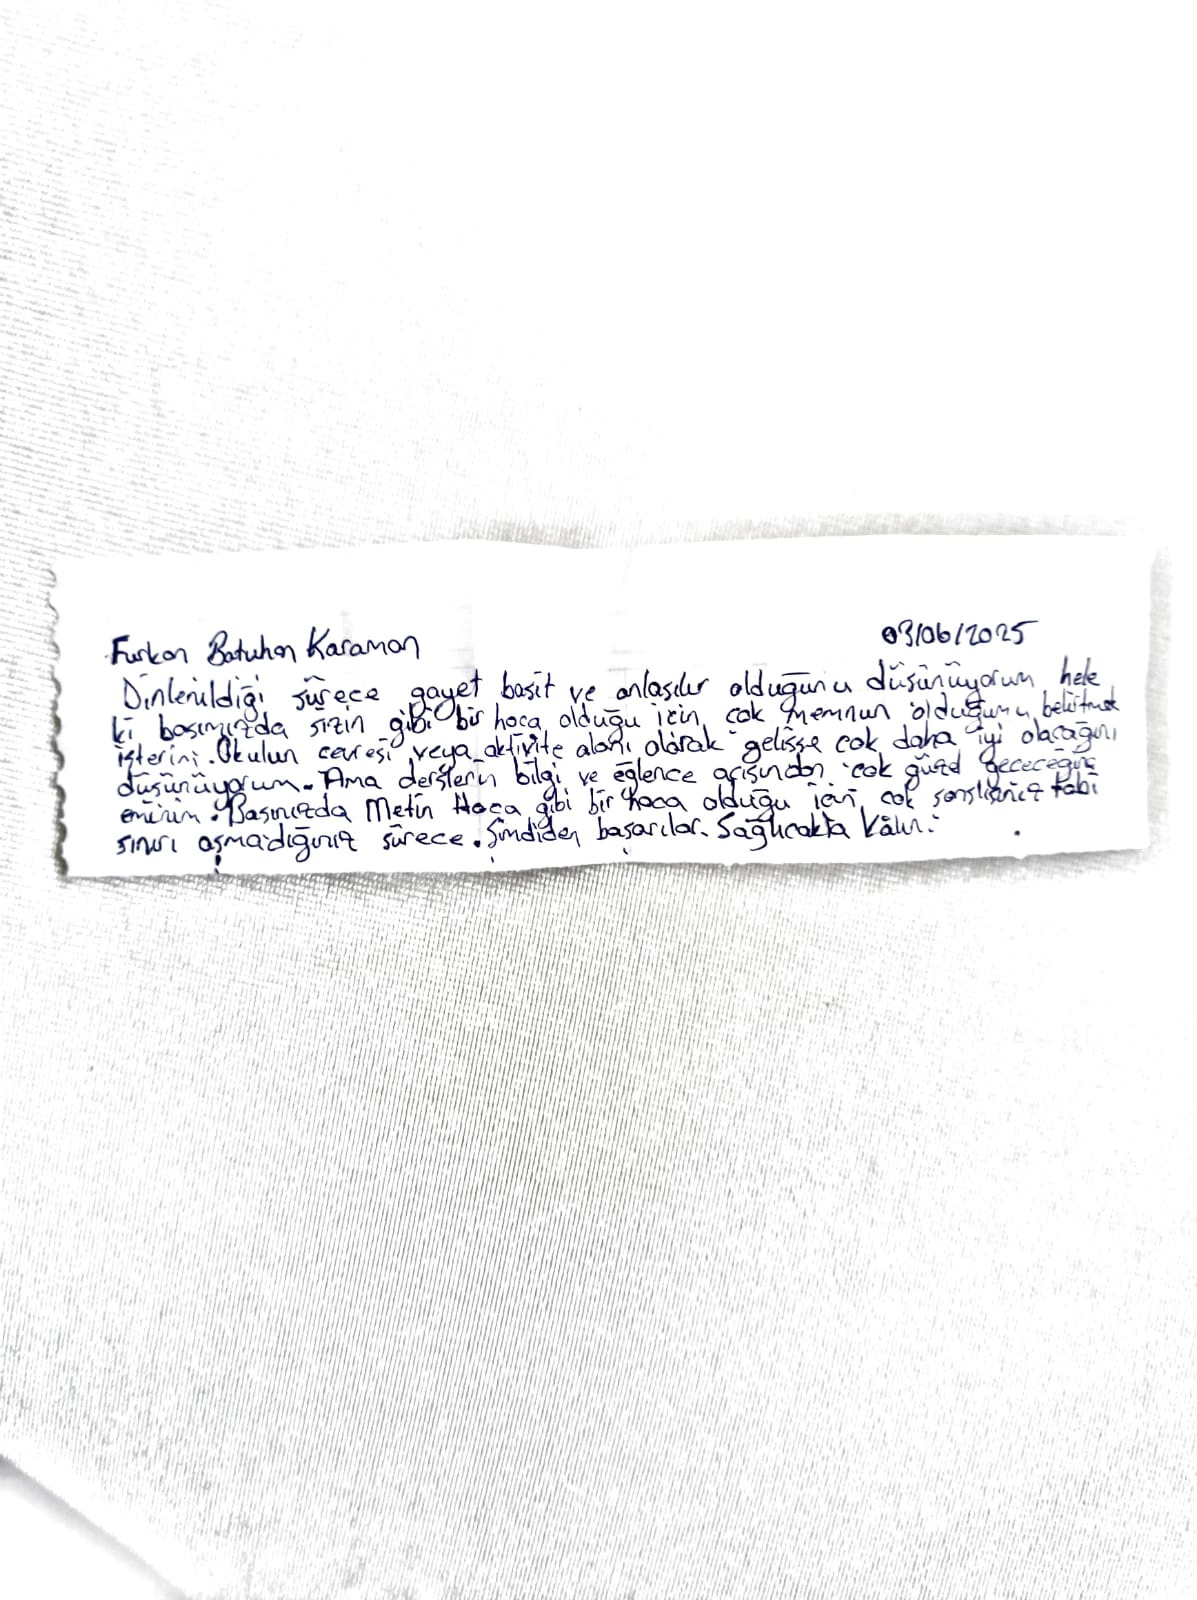 Furkan Batuhan Karaman 03/06/2025
Dinlenildiği sürece gayet basit ve anlaşılır olduğunu düşünüyorum hele
ki başımızda sizin gibi bir hoca olduğu için çok memnun olduğumu belirtmek
isterim. Okulun çevresi veya aktivite alanı olarak gelişse çok daha iyi olacağını
düşünüyorum. Ama derslerin bilgi ve eğlence açısından çok güzel geçeceğine
eminim. Başınızda Metin Hoca gibi bir hoca olduğu için çok şanslısınız tabi
sınırı aşmadığınız sürece. Şimdiden başarılar. Sağlıcakla kalın.